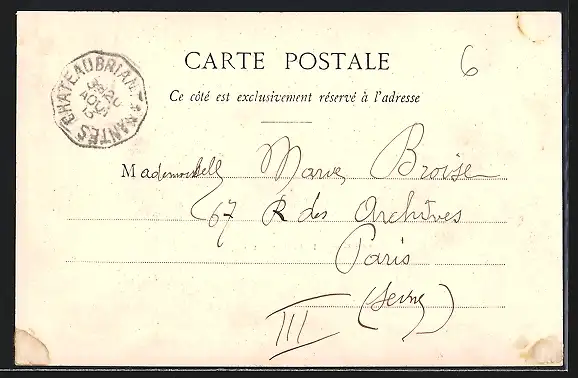 CHATEAUBRIANT A NANTES
AOUT
6
CARTE POSTALE
Ce côté est exclusivement réservé à l'adresse
Mademoiselle Marie Broise
67 R des Archives
Paris
(Seine)
III